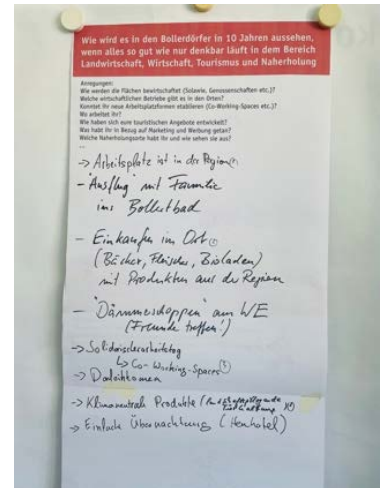 Wie wird es in den Bollerdörfer in 10 Jahren aussehen,
wenn alles so gut wie nur denkbar läuft in dem Bereich
Landwirtschaft, Wirtschaft, Tourismus und Naherholung
Anregungen:
Wie werden die Flächen bewirtschaftet (Solawie, Genossenschaften etc.)?
Welche wirtschaftlichen Betriebe gibt es in den Orten?
Konntet ihr neue Arbeitsplatzformen etablieren (Co-Working-Spaces etc.)?
Wo arbeitet ihr?
Wie haben sich eure touristischen Angebote entwickelt?
Was habt ihr in Bezug auf Marketing und Werbung getan?
Welche Naherholungsorte habt ihr und wie sehen sie aus?
...
-> Arbeitsplatz ist in die Region
- "Ausflug mit Familie
ins Bollertbad
- Einkaufen im Ort
(Bäcker, Fleischer, Bioladen)
mit Produkten aus der Region
- "Dämmerschoppen" am WE
(Freunde treffen!)
->
-> Co-Working-Spaces
->
-> Klimaneutrale Produkte
-> Einfache Übernachtung (Heuhotel)